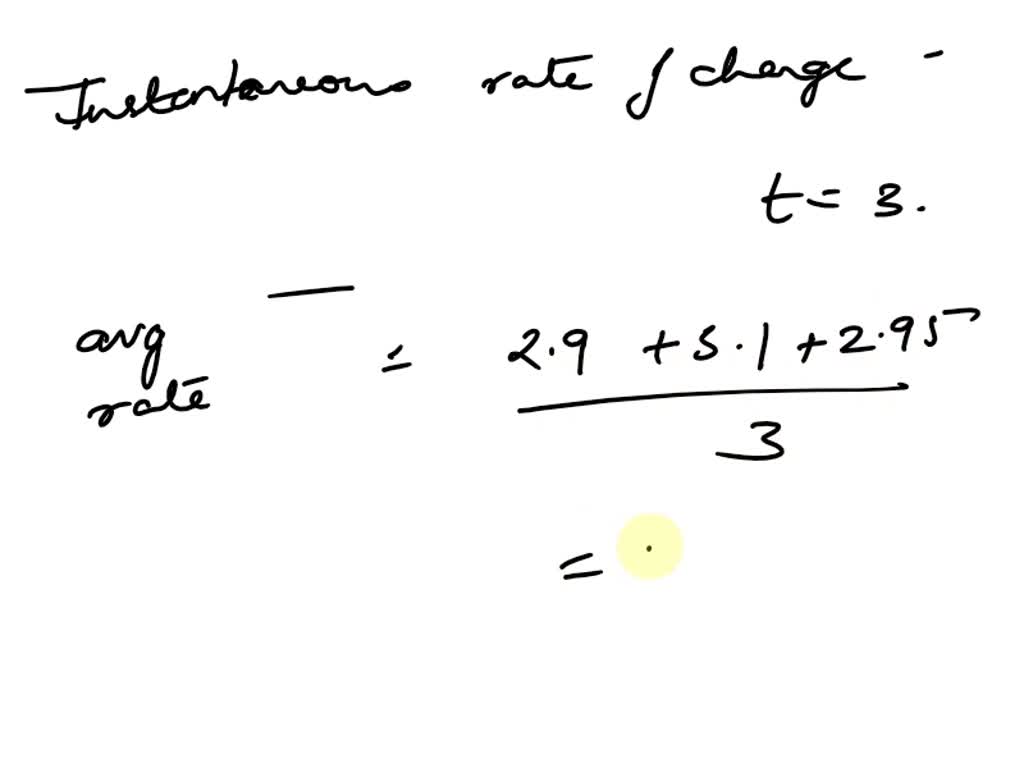 Instantaneous rate of change -
t = 3.
avg rate = 2.9 + 3.1 + 2.95
3
=